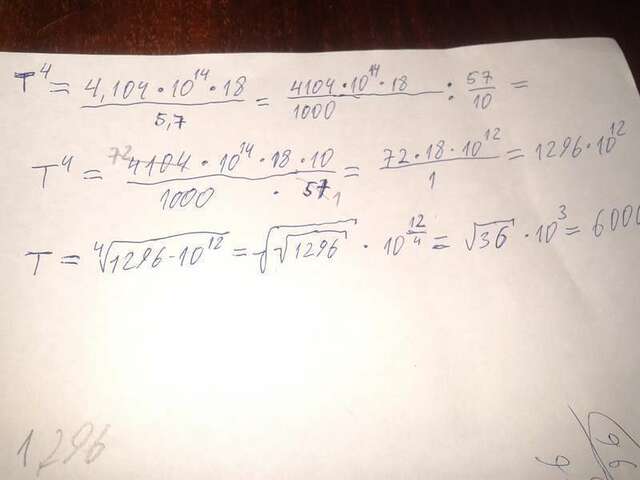 T⁴ = 4,104 · 10¹⁴ · 18 / 5,7 = 4104 · 10¹⁴ · 18 / 1000 : 57 / 10 =
T⁴ = 72 4104 · 10¹⁴ · 18 · 10 / 1000 · 57 1 = 72 · 18 · 10¹² / 1 = 1296 · 10¹²
T = ⁴√1296 · 10¹² = √√1296 · 10^(12/4) = √36 · 10³ = 6000
1296